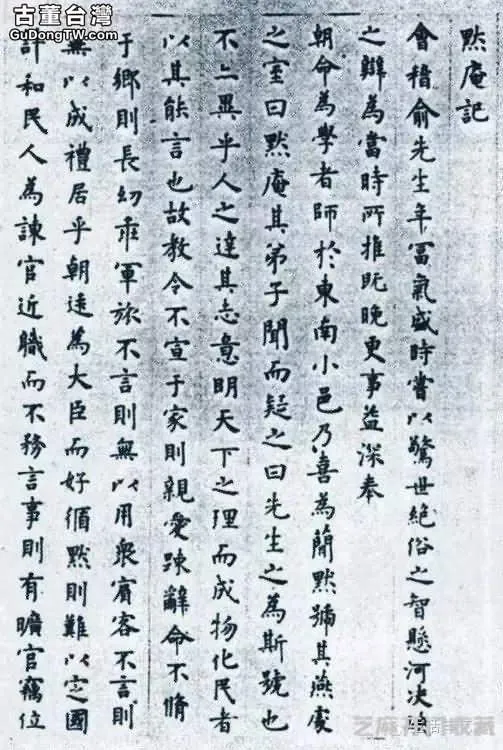 古董台灣
GuDongTW.com
默庵記
會稽俞先生年富氣盛時嘗以驚世絕俗之智懸河決
之辯為當時所推既晚更事益深奉
朝命為學者師於東南小邑乃喜為簡默號其燕處
之室曰默庵其弟子聞而疑之曰先生之為斯號也
不亦異乎人之達其志意明天下之理而成物化民者
以其能言也故教令不宣于家則親愛踈辭命不脩
于鄉則長幼乖軍旅不言則無以用眾賓客不言則
無以成禮居乎朝廷為大臣而好循默則難以定國
計和民人為諫官近職而不務言事則有曠官竊位